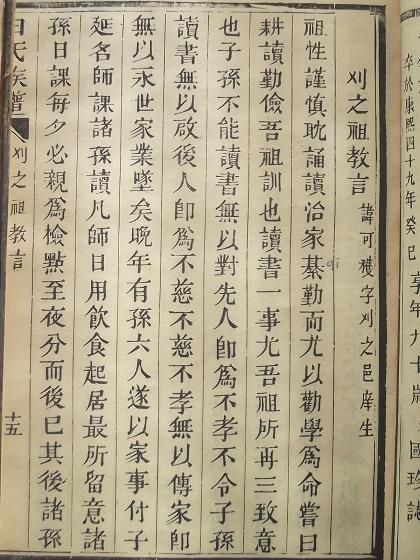 卒於康熙四十九年癸巳享年九十歲 國珍誌
刈之祖教言 諱可穫字刈之邑庠生
祖性謹慎耽誦讀治家綦qí勤而尤以勸學爲命嘗曰
耕讀勤儉吾祖訓也讀書一事尤吾祖所再三致意
也子孫不能讀書無以對先人卽爲不孝不令子孫
讀書無以啟後人卽爲不慈不慈不孝無以傳家卽
無以永世家業墜矣晚年有孫六人遂以家事付子
延名師課諸孫讀凡師日用飲食起居最所留意諸
孫日課每夕必親爲檢點至夜分而後已其後諸孫
氏族譜 刈之祖教言 十五